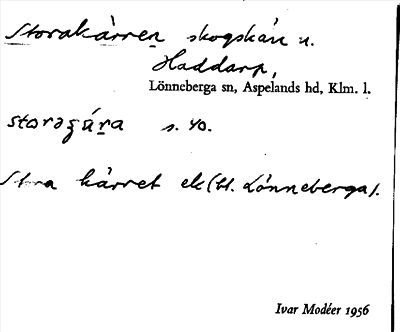 Storakärren skogskärr n.
Haddarp,
Lönneberga sn, Aspelands hd, Klm. l.
s. 40.
Stora kärret ek (bl. Lönneberga).
Ivar Modéer 1956